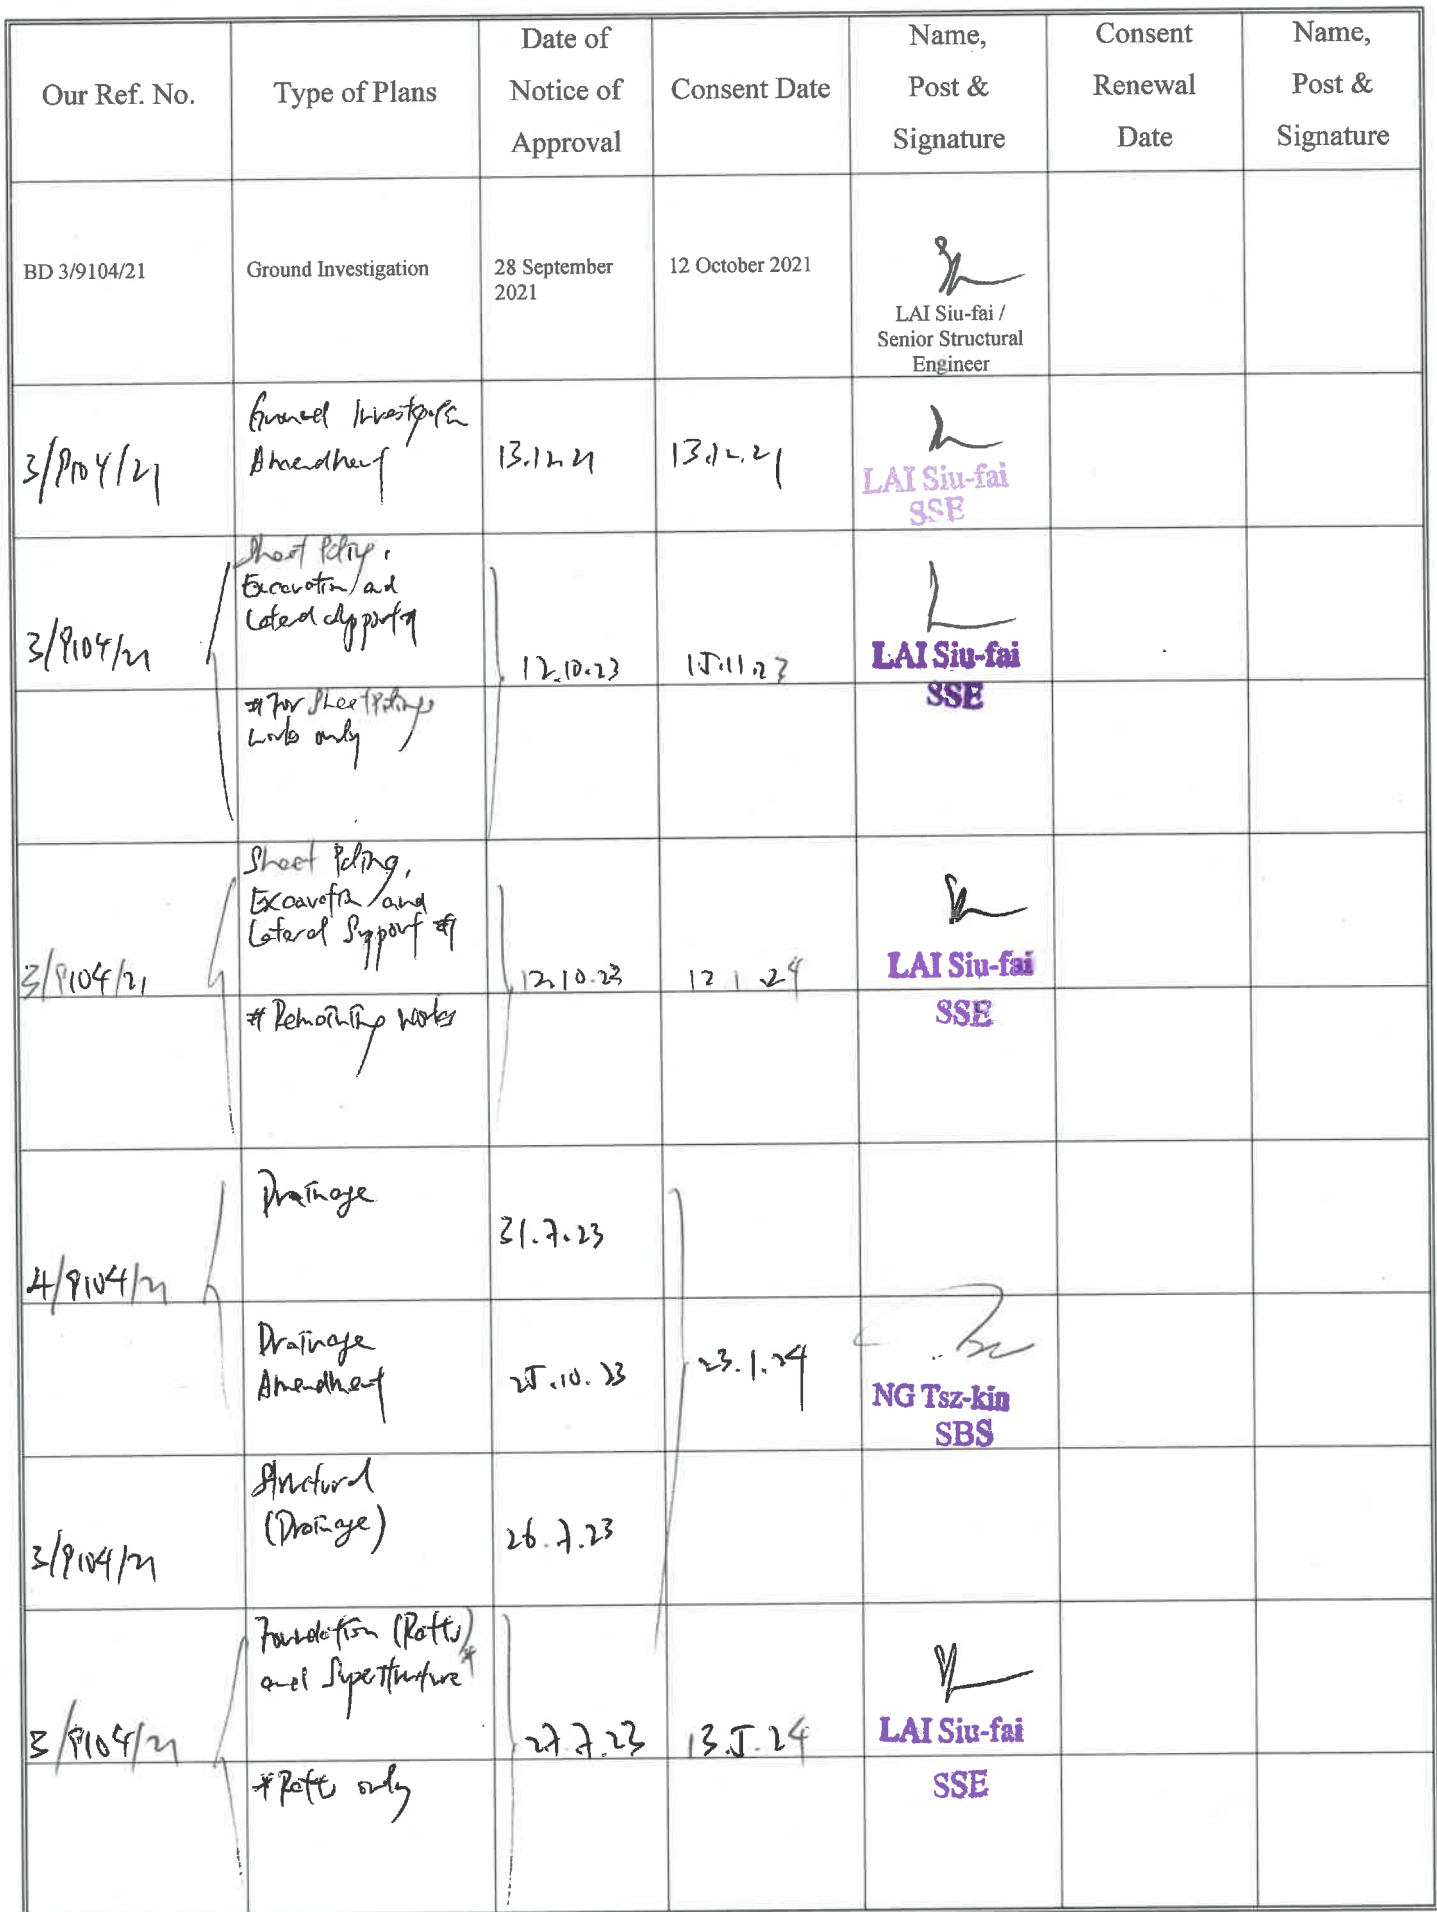 Our Ref. No.
Type of Plans
Date of
Notice of
Approval
Consent Date
Name,
Post &
Signature
Consent
Renewal
Date
Name,
Post &
Signature
BD 3/9104/21
Ground Investigation
28 September
2021
12 October 2021
LAI Siu-fai /
Senior Structural
Engineer
3/9104/21
Ground Investigation
Amendment
13.12.21
13.12.21
LAI Siu-fai
SSE
3/9104/21
Sheet Piling,
Excavation and
Lateral Support #
# For Sheet Piling
works only
12.10.23
15.11.23
LAI Siu-fai
SSE
3/9104/21
Sheet Piling,
Excavation and
Lateral Support #
# Remaining works
12.10.23
12.1.24
LAI Siu-fai
SSE
4/9104/21
Drainage
31.7.23
Drainage
Amendment
25.10.23
23.1.24
NG Tsz-kin
SBS
3/9104/21
Structural
(Drainage)
26.7.23
3/9104/21
Foundation (Raft)
and Superstructure #
# Raft only
27.7.23
13.5.24
LAI Siu-fai
SSE